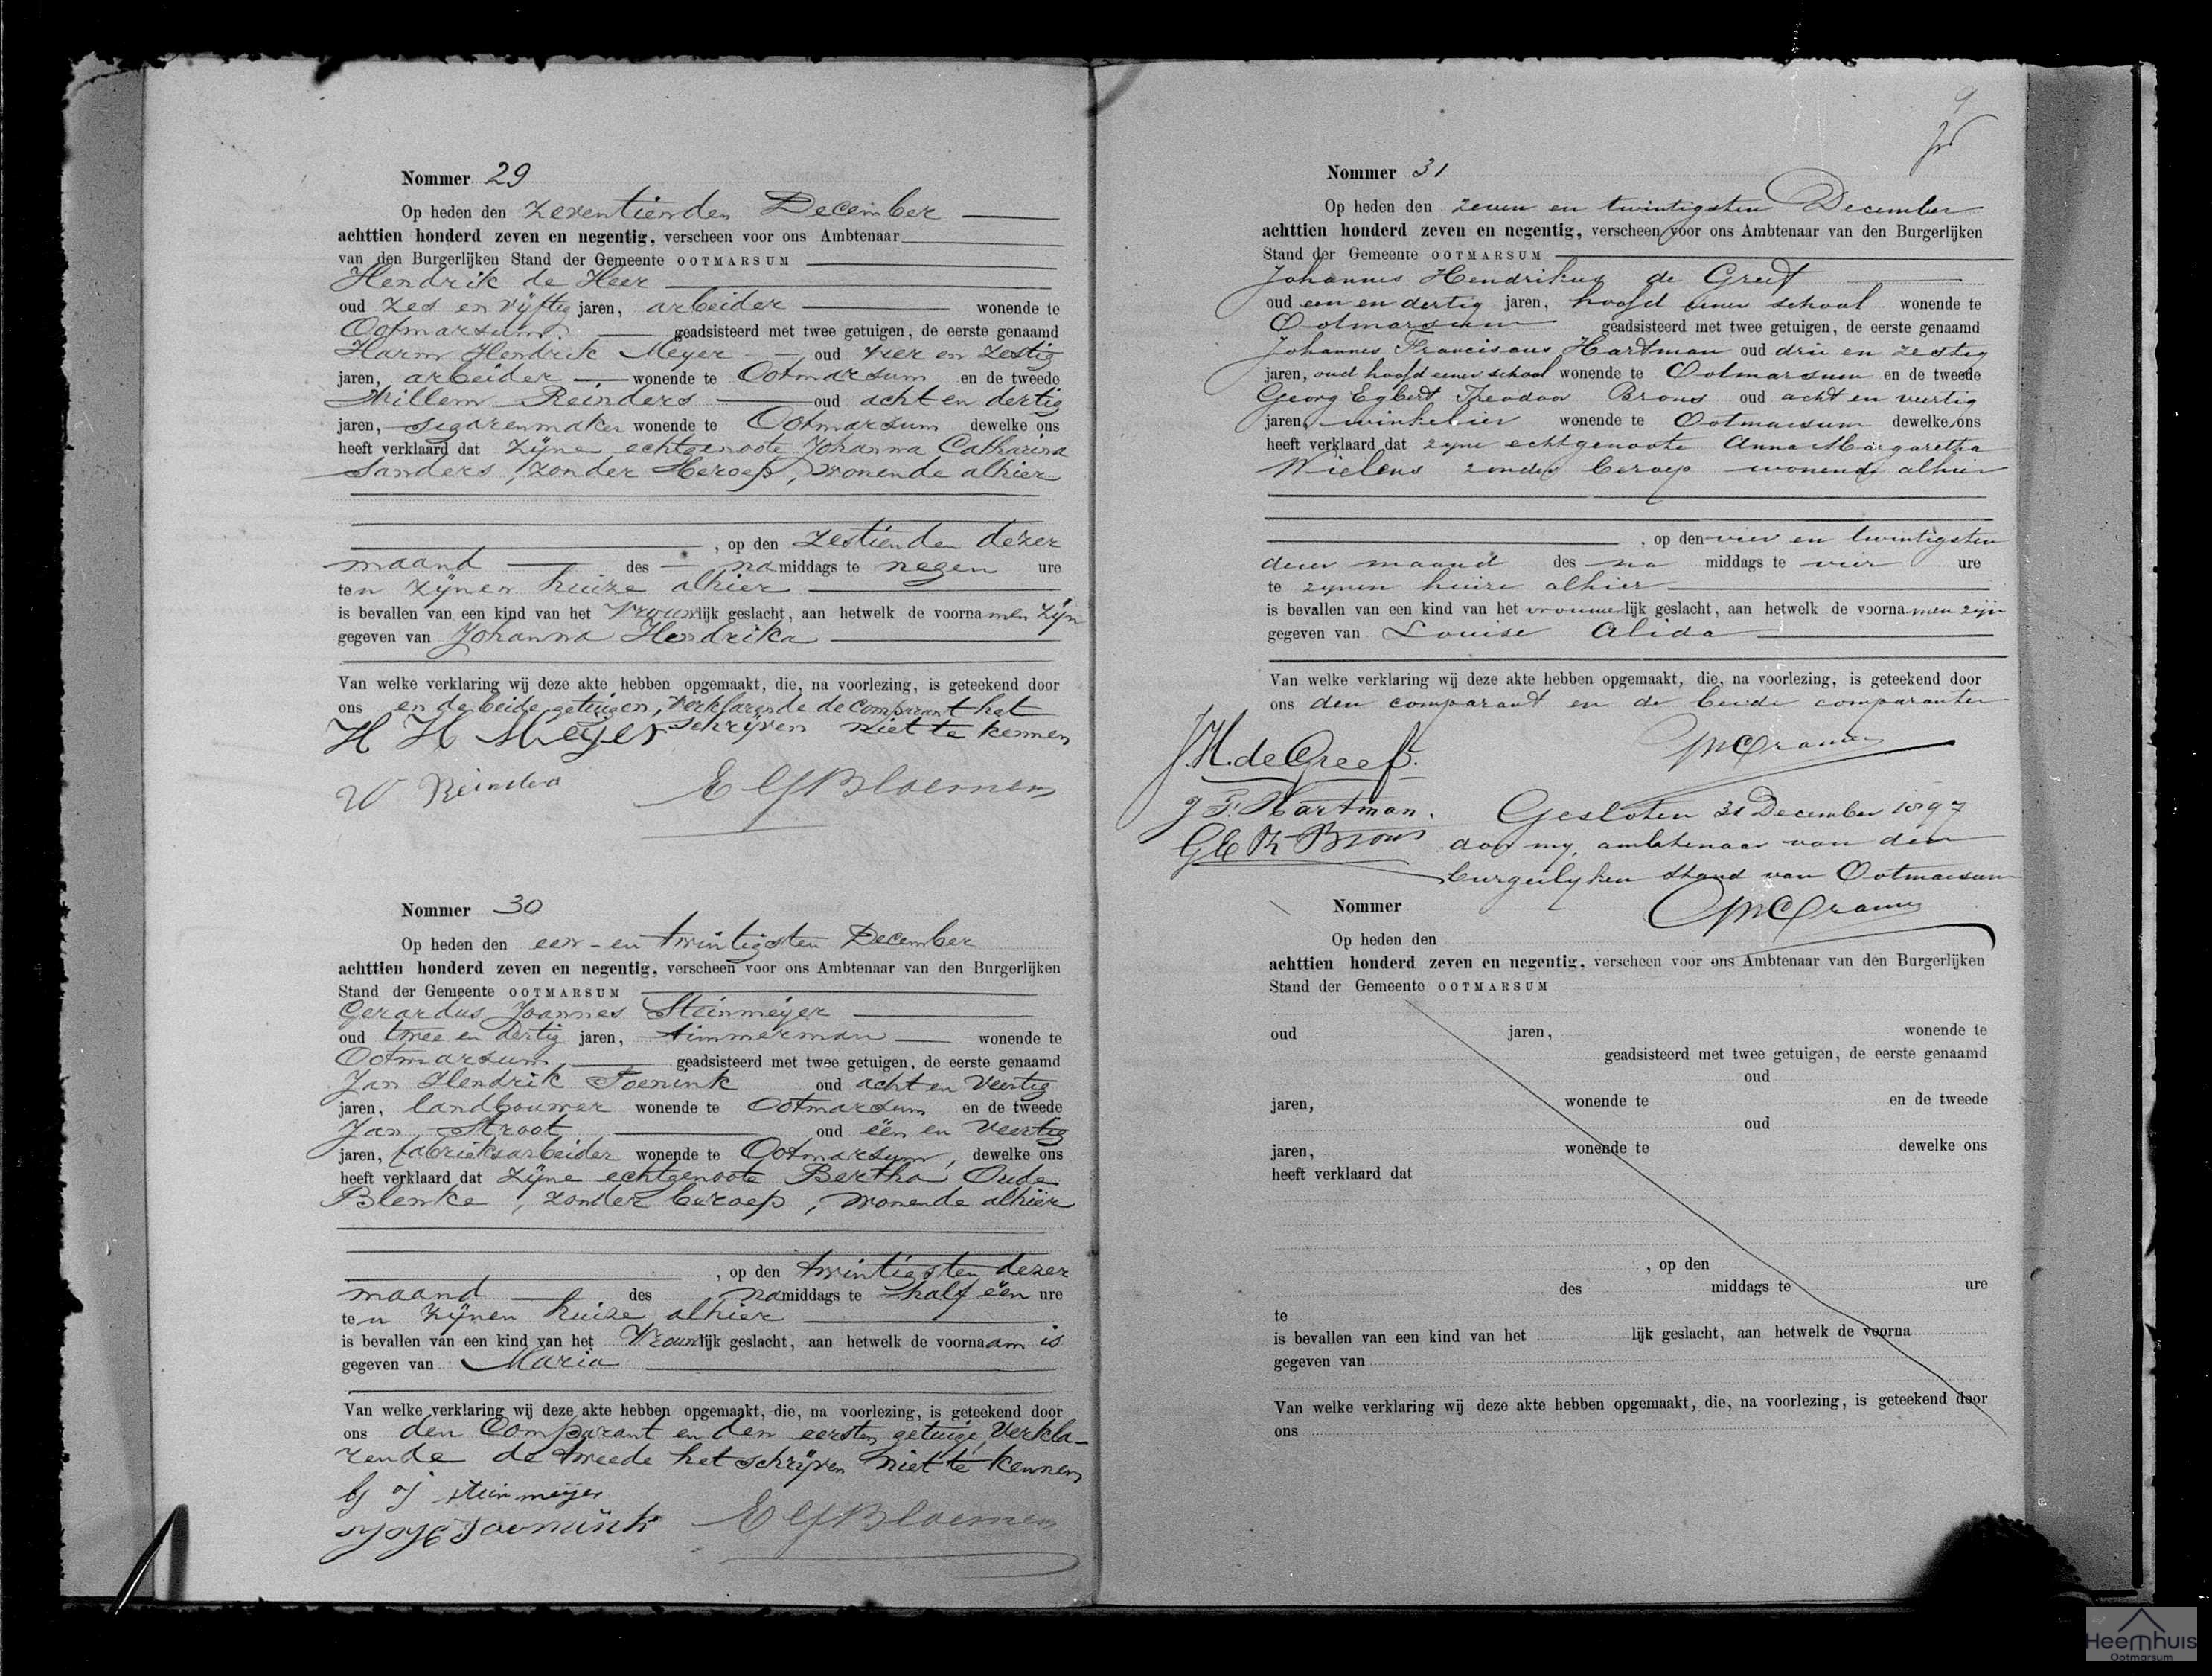 Nommer 29
Op heden den zeventienden December
achttien honderd zeven en negentig, verscheen voor ons Ambtenaar
van den Burgerlijken Stand der Gemeente OOTMARSUM
Hendrik de Heer
oud zes en vijftig jaren, arbeider wonende te
Ootmarsum, geadsisteerd met twee getuigen, de eerste genaamd
Harm Hendrik Meyer oud vier en zestig
jaren, arbeider wonende te Ootmarsum en de tweede
Willem Reinders oud acht en dertig
jaren, sigarenmaker wonende te Ootmarsum dewelke ons
heeft verklaard dat zijne echtgenoote Johanna Catharina
Sanders, zonder beroep, wonende alhier
, op den zestienden dezer
maand des namiddags te negen ure
ten zijnen huize alhier
is bevallen van een kind van het vrouwlijk geslacht, aan hetwelk de voornamen zijn
gegeven van Johanna Hendrika
Van welke verklaring wij deze akte hebben opgemaakt, die, na voorlezing, is geteekend door
ons en de beide getuigen, verklarende de comparant het
schrijven niet te kennen
H H Meijer
W Reinders
E Bloemen
Nommer 30
Op heden den een-en twintigsten December
achttien honderd zeven en negentig, verscheen voor ons Ambtenaar van den Burgerlijken
Stand der Gemeente OOTMARSUM
Gerardus Joannes Steinmeijer
oud twee en dertig jaren, timmerman wonende te
Ootmarsum, geadsisteerd met twee getuigen, de eerste genaamd
Jan Hendrik Toenink oud acht en veertig
jaren, landbouwer wonende te Ootmarsum en de tweede
Jan Stroot oud één en veertig
jaren, fabrieksarbeider wonende te Ootmarsum, dewelke ons
heeft verklaard dat zijne echtgenoote Bertha Oude
Blenke, zonder beroep, wonende alhier
, op den twintigsten dezer
maand des namiddags te half één ure
ten zijnen huize alhier
is bevallen van een kind van het vrouwlijk geslacht, aan hetwelk de voornaam is
gegeven van Maria
Van welke verklaring wij deze akte hebben opgemaakt, die, na voorlezing, is geteekend door
ons den Comparant en den eersten getuige, verkla-
rende de tweede het schrijven niet te kennen
G J Steinmeijer
J H Toenink
E Bloemen
9
Nommer 31
Op heden den zeven en twintigsten December
achttien honderd zeven en negentig, verscheen voor ons Ambtenaar van den Burgerlijken
Stand der Gemeente OOTMARSUM
Johannes Hendrikus de Greef
oud een en dertig jaren, hoofd eener school wonende te
Ootmarsum geadsisteerd met twee getuigen, de eerste genaamd
Johannes Franciscus Hartman oud drie en zestig
jaren, oud hoofd eener school wonende te Ootmarsum en de tweede
Georg Egbert Theodoor Brons oud acht en veertig
jaren, winkelier wonende te Ootmarsum dewelke ons
heeft verklaard dat zyne echtgenoote Anna Margaretha
Wielens zonder beroep wonende alhier
, op den vier en twintigsten
dezer maand des na middags te vier ure
te zynen huize alhier
is bevallen van een kind van het vrouwelijk geslacht, aan hetwelk de voornamen zijn
gegeven van Louise Alida
Van welke verklaring wij deze akte hebben opgemaakt, die, na voorlezing, is geteekend door
ons den comparant en de beide comparanten
J.H. de Greef.
J F. Hartman.
G E Th Brons
Gesloten 31 December 1897
door my, ambtenaar van den
burgerlyken Stand van Ootmarsum
Nommer
Op heden den
achttien honderd zeven en negentig, verscheen voor ons Ambtenaar van den Burgerlijken
Stand der Gemeente OOTMARSUM
oud jaren, wonende te
geadsisteerd met twee getuigen, de eerste genaamd
oud
jaren, wonende te en de tweede
oud
jaren, wonende te dewelke ons
heeft verklaard dat
, op den
des middags te ure
te
is bevallen van een kind van het lijk geslacht, aan hetwelk de voorna
gegeven van
Van welke verklaring wij deze akte hebben opgemaakt, die, na voorlezing, is geteekend door
ons
Heemhuis
Ootmarsum